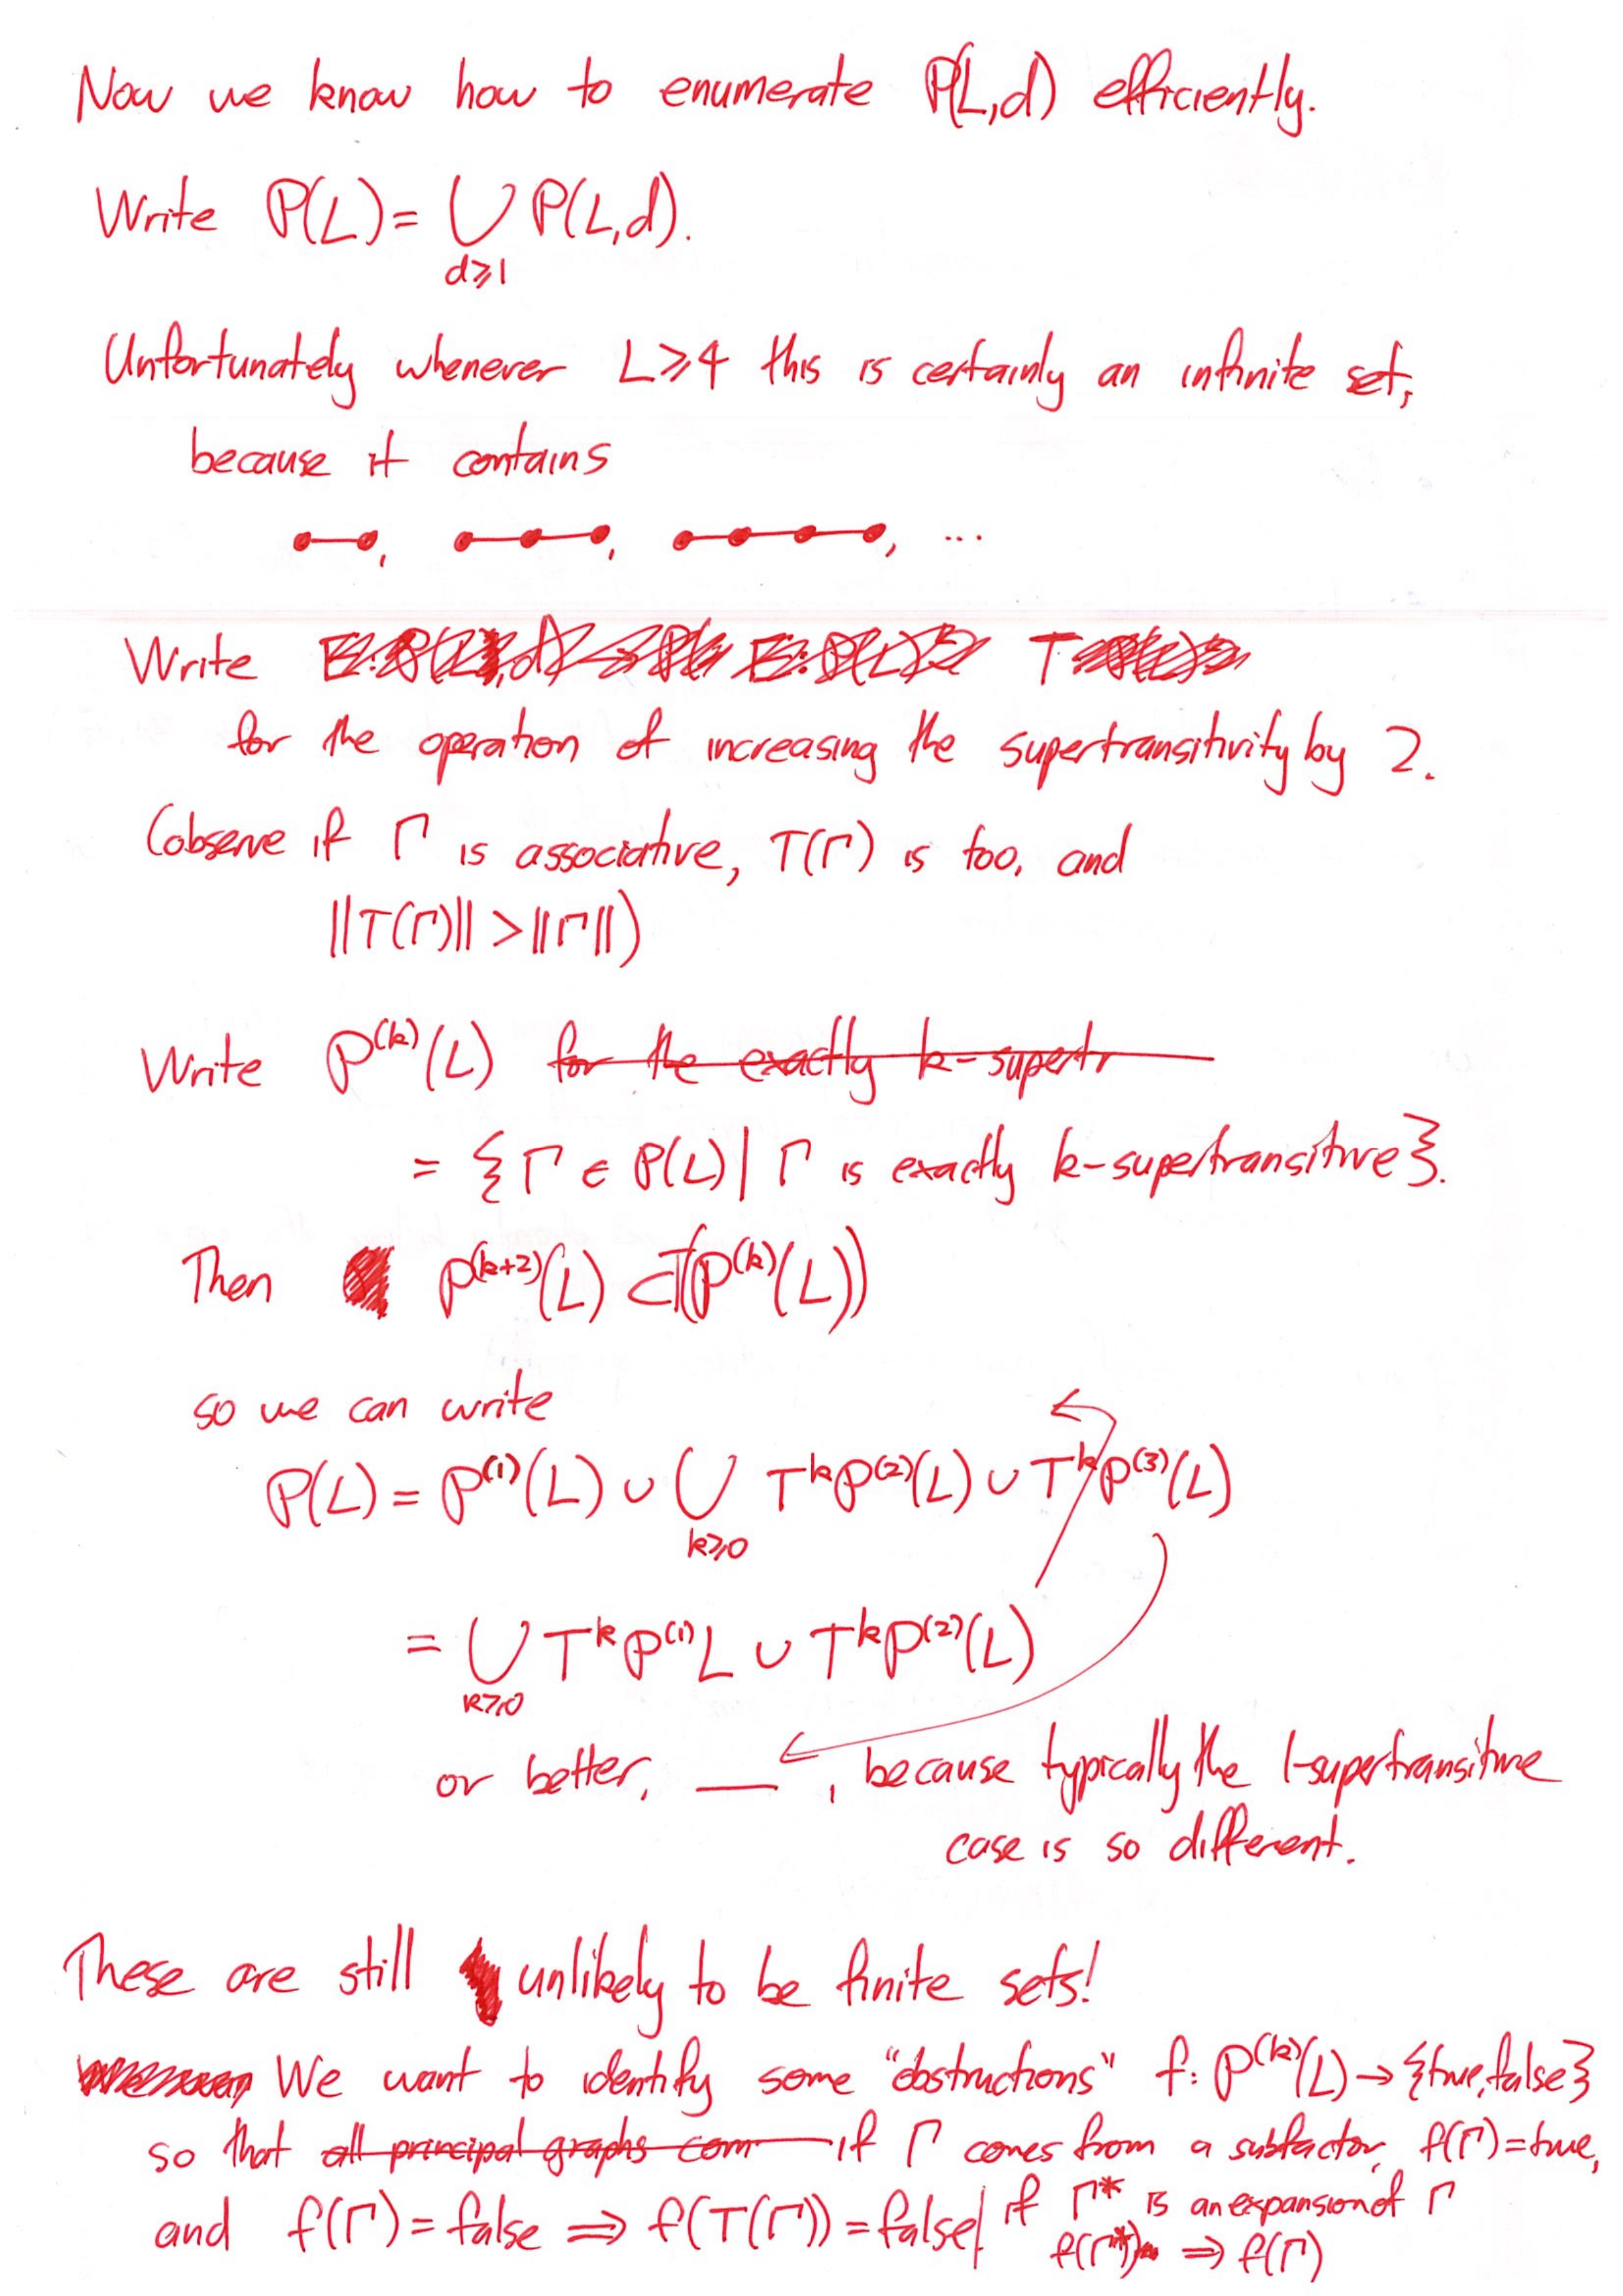 Now we know how to enumerate P(L,d) efficiently.
Write P(L) = ⋃ P(L,d).
d⩾1
Unfortunately whenever L⩾4 this is certainly an infinite set,
because it contains
, , , ...
Write T
for the operation of increasing the supertransitivity by 2.
(observe if Γ is associative, T(Γ) is too, and
||T(Γ)|| > ||Γ||)
Write P^(k)(L) for the exactly k-supertr
= {Γ ∈ P(L) | Γ is exactly k-supertransitive}.
Then P^(k+2)(L) ⊂ T(P^(k)(L))
so we can write
P(L) = P^(1)(L) ∪ ⋃ T^k P^(2)(L) ∪ T^k P^(3)(L)
k⩾0
= ⋃ T^k P^(1) L ∪ T^k P^(2)(L)
k⩾0
or better, ___, because typically the 1-supertransitive
case is so different.
These are still unlikely to be finite sets!
We want to identify some "obstructions" f: P^(k)(L) → {true, false}
so that all principal graphs com if Γ comes from a subfactor, f(Γ)=true,
and f(Γ) = false ⟹ f(T(Γ)) = false / if Γ* is an expansion of Γ
f(Γ*) ⟹ f(Γ)